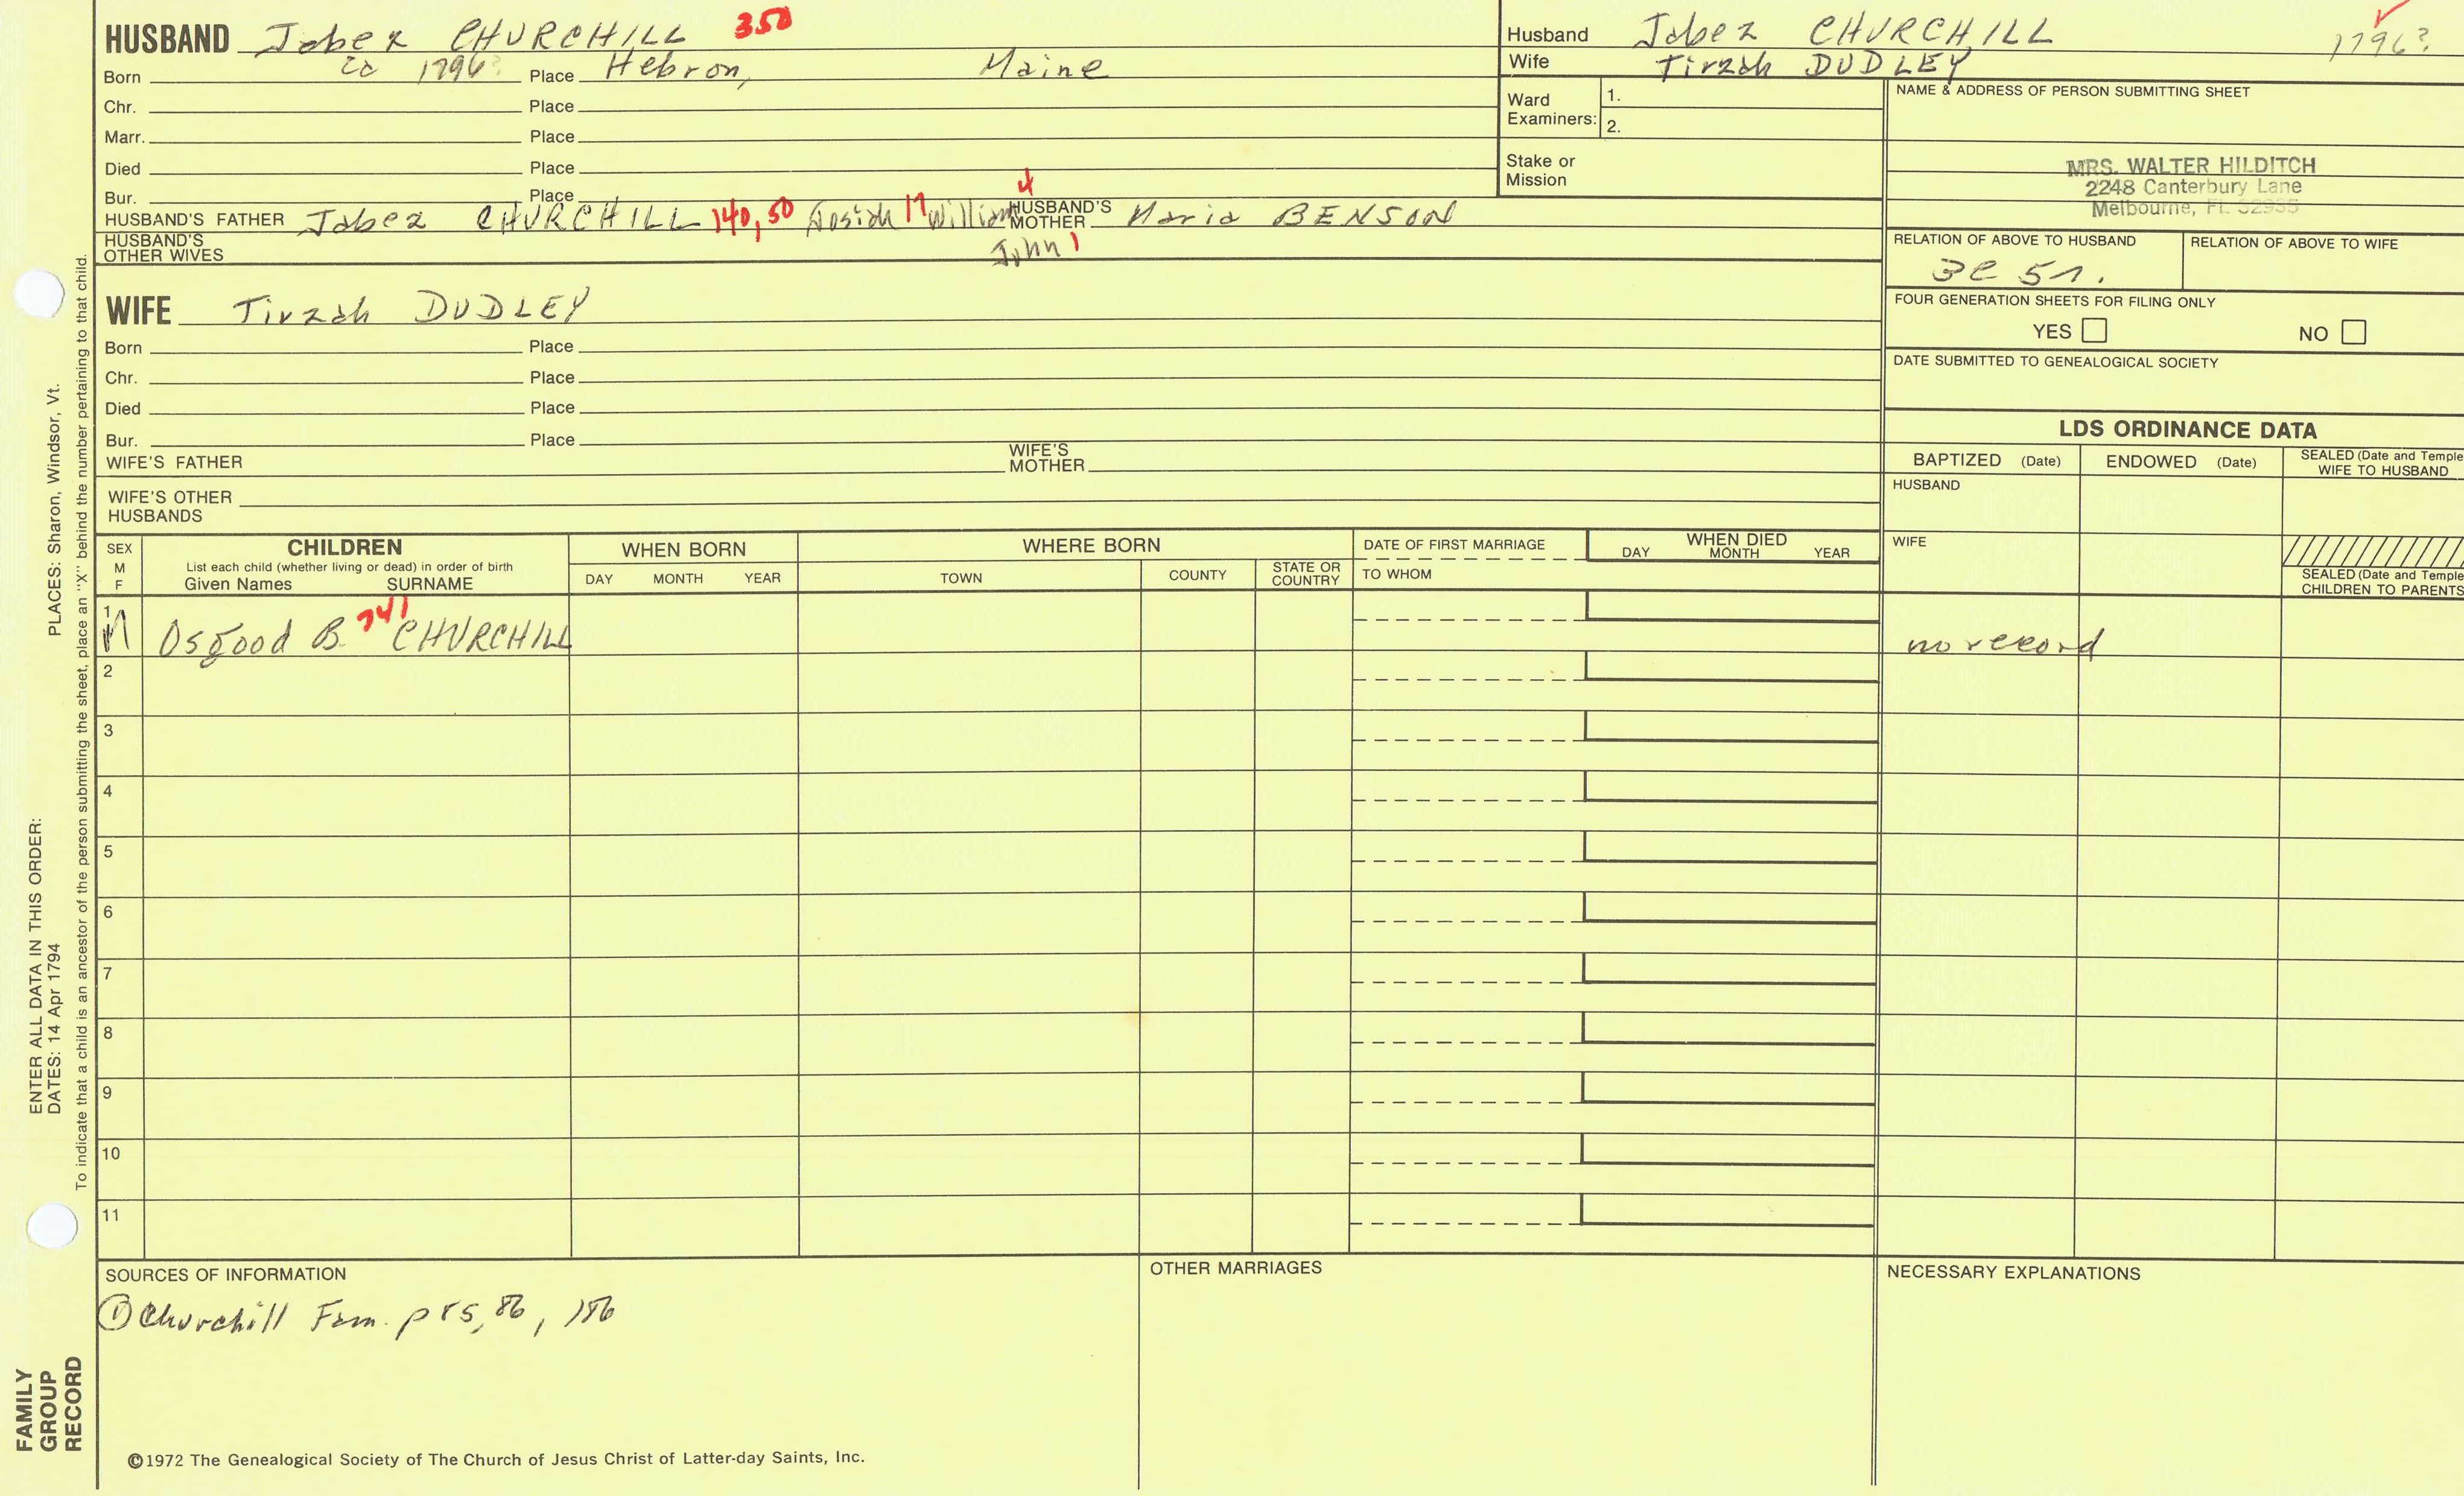 HUSBAND Jabez CHURCHILL 350
Born ca 1796? Place Hebron, Maine
Chr. Place
Marr. Place
Died Place
Bur. Place
HUSBAND'S FATHER Jabez CHURCHILL 140, 50 Josiah 17 William 4 HUSBAND'S MOTHER Maria BENSON
John 1
HUSBAND'S OTHER WIVES
Husband Jabez CHURCHILL 1796?
Wife Tirzah DUDLEY
Ward Examiners: 1.
2.
Stake or Mission
NAME & ADDRESS OF PERSON SUBMITTING SHEET
MRS. WALTER HILDITCH
2248 Canterbury Lane
Melbourne, FL 32935
RELATION OF ABOVE TO HUSBAND RELATION OF ABOVE TO WIFE
3C 5r.
FOUR GENERATION SHEETS FOR FILING ONLY
YES NO
DATE SUBMITTED TO GENEALOGICAL SOCIETY
WIFE Tirzah DUDLEY
Born Place
Chr. Place
Died Place
Bur. Place
WIFE'S FATHER WIFE'S MOTHER
WIFE'S OTHER HUSBANDS
LDS ORDINANCE DATA
BAPTIZED (Date) ENDOWED (Date) SEALED (Date and Temple) WIFE TO HUSBAND
HUSBAND
WIFE
SEALED (Date and Temple) CHILDREN TO PARENTS
SEX M F
CHILDREN
List each child (whether living or dead) in order of birth
Given Names SURNAME
WHEN BORN
DAY MONTH YEAR
WHERE BORN
TOWN COUNTY STATE OR COUNTRY
DATE OF FIRST MARRIAGE
TO WHOM
WHEN DIED
DAY MONTH YEAR
1 M Osgood B. 741 CHURCHILL no record
2
3
4
5
6
7
8
9
10
11
SOURCES OF INFORMATION
① Churchill Fam. p 85, 86, 186
OTHER MARRIAGES
NECESSARY EXPLANATIONS
©1972 The Genealogical Society of The Church of Jesus Christ of Latter-day Saints, Inc.
FAMILY GROUP RECORD
ENTER ALL DATA IN THIS ORDER:
DATES: 14 Apr 1794 PLACES: Sharon, Windsor, Vt.
To indicate that a child is an ancestor of the person submitting the sheet, place an "X" behind the number pertaining to that child.